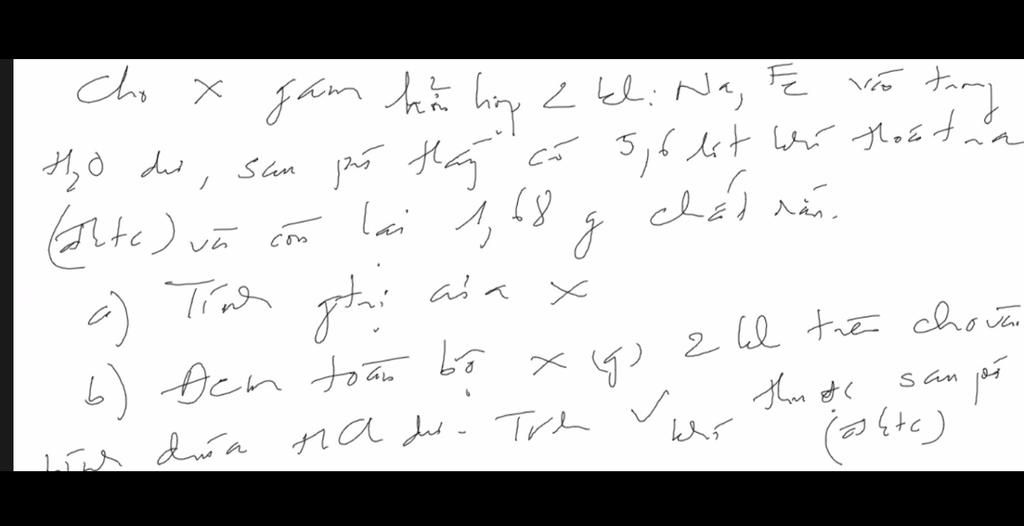 Cho x gam hỗn hợp 2 kl: Na, Fe vào trong
H₂O dư, sau pứ thấy có 5,6 lít khí thoát ra
(đktc) và còn lại 1,68 g chất rắn.
a) Tính gtrị của x
b) Đem toàn bộ x (g) 2 kl trên cho vào
bình chứa HCl dư. Tính V khí thu đc sau pứ
(đktc)